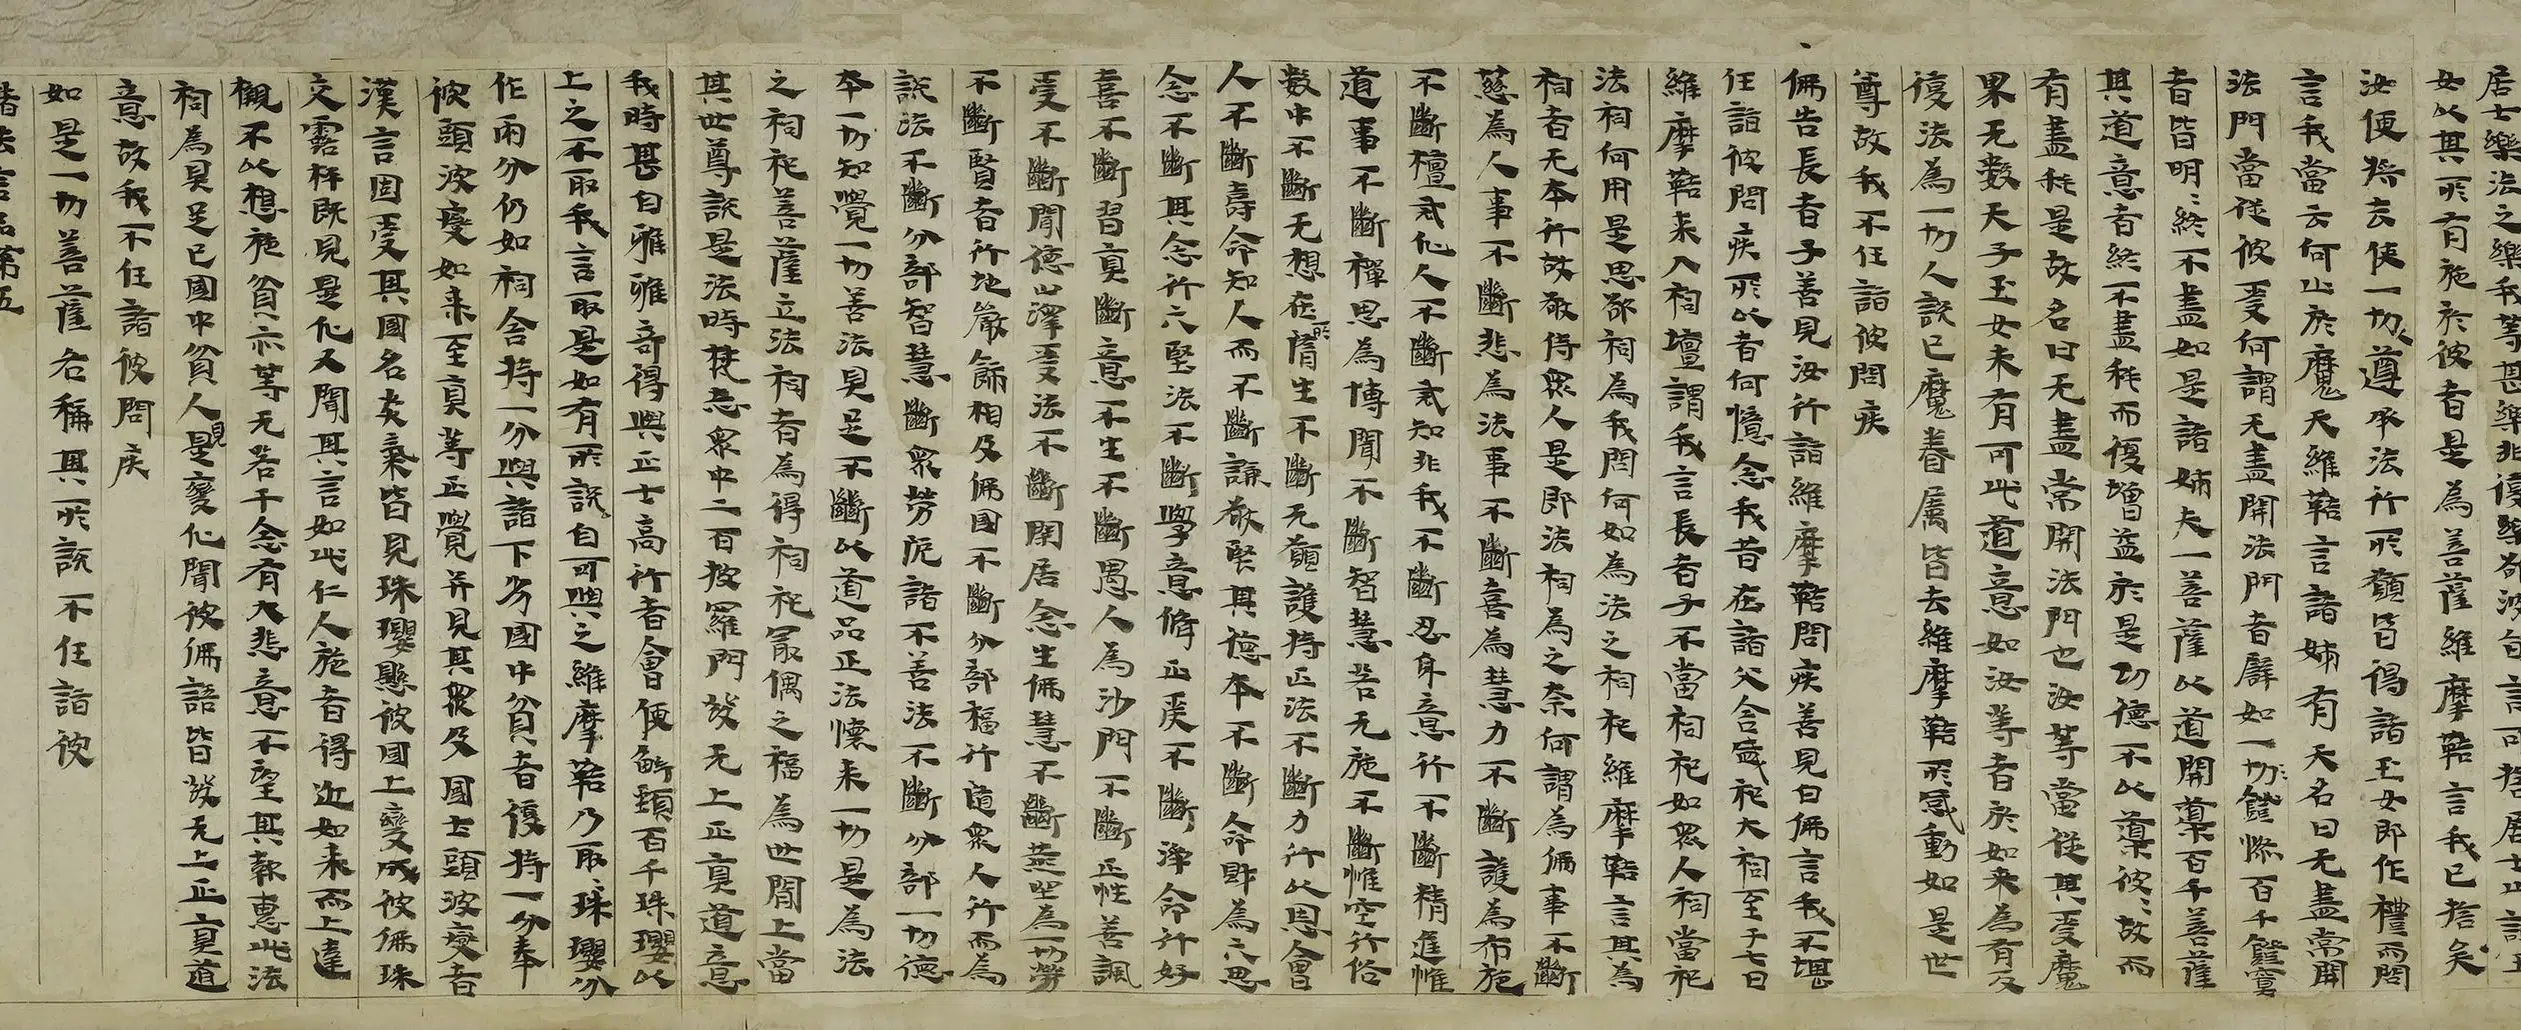 居士樂法之樂我等甚樂非復樂欲波旬言可捨居士此諸玉
女以其所有施於彼者是為菩薩維摩鞊言我已捨矣
汝便將去使一切人遵承法行所願皆得諸玉女即作禮而問
言我當云何止於魔天維鞊言諸姊有天名曰无盡常開
法門當從彼受何謂无盡開法門者譬如一切鐙燃百千鐙冥
者皆明明終不盡如是諸姊夫一菩薩以道開導百千菩薩
其道意者終不盡秏而復增益於是功德不以導彼彼故而
有盡秏是故名曰无盡常開法門也汝等當從其受魔
界无數天子玉女未有可此道意如汝等者於如來為有反
復法為一切人說已魔眷属皆去維摩鞊所感動如是世
尊故我不任詣彼問疾
佛告長者子善見汝行詣維摩鞊問疾善見白佛言我不堪
任詣彼問疾所以者何憶念我昔在諸父舍盛祀大祠至于七日
維摩鞊来入祠壇謂我言長者子不當祠祀如眾人祠當祀
法祠何用是思欲祠為我問何如為法之祠祀維摩鞊言其為
祠者无本行故敬侍眾人是即法祠為之奈何謂為佛事不斷
慈為人事不斷悲為法事不斷喜為慧力不斷護為布施
不斷檀戒化人不斷戒知非我不斷忍身意行不斷精進惟
道事不斷禪思為博聞不斷智慧若无施不斷惟空行俗
數中不斷无想在所墮生不斷无願護持正法不斷力行以恩會
人不斷壽命知人而不斷謙敬堅其德本不斷命財為六思
念不斷其念行六堅法不斷學意脩正受不斷淨命行好
喜不斷習真斷意不生不斷愚人為沙門不斷正性善諷
受不斷聞德山澤受法不斷閑居念生佛慧不斷燕坐為一切勞
不斷賢者行地嚴飾相及佛國不斷分部福行随眾人行而為
說法不斷分部智慧斷眾勞阨諸不善法不斷分部一切德
本一切知覺一切善法具足不斷以道品正法懷来一切是為法
之祠祀菩薩立法祠者為得祠祀最偶之福為世間上當
其世尊說是法時梵志眾中二百披羅門發无上正真道意
我時甚自雅雅奇得與正士高行者會便解頸百千珠瓔以
上之不取我言取是如有所說自可與之維摩鞊乃取珠瓔分
作兩分仍如祠舍持一分與諸下劣國中貧者復持一分奉
彼頭波變如来至真等正覺并見其眾及國土頭波變者
漢言固受其國名炎氣皆見珠瓔懸彼國上變成彼佛珠
交露棚既見是化又聞其言如此仁人施者得近如来而上達
嚫不以想施貧亦等无若干念有大悲意不望其報惠此法
祠為具足已國中貧人見是變化聞彼佛語皆發无上正真道
意故我不任詣彼問疾
如是一切菩薩各稱其所說不任詣彼
諸法言品第五